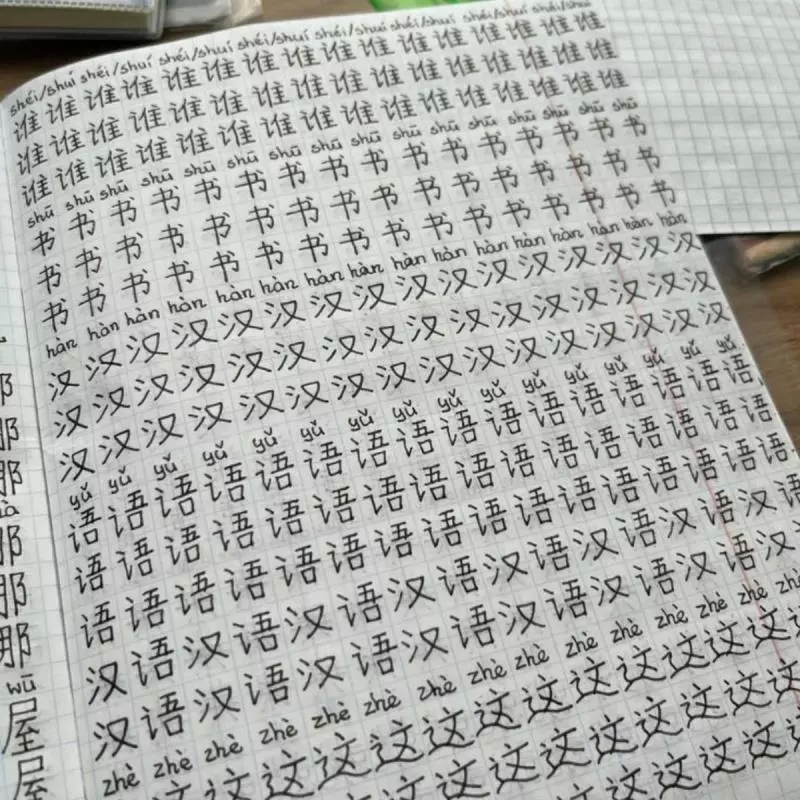 那
那
那
那
那
那
wū
屋
屋
shéi/shuí shéi/shuí shéi/shuí shéi/shuí shéi/shuí shéi/shuí shéi/shuí shéi/shuí
谁谁谁谁谁谁谁谁谁谁谁谁谁谁谁谁
谁谁谁谁谁谁谁谁谁谁谁谁谁谁谁谁
谁谁谁谁谁谁谁谁谁谁谁谁谁谁谁谁
shū shū shū shū shū shū shū shū shū shū shū shū shū shū shū shū
书书书书书书书书书书书书书书书书
书书书书书书书书书书书书书书书书
书书书书书书书书书书书书书书书书
hàn hàn hàn hàn hàn hàn hàn hàn hàn hàn hàn hàn hàn hàn hàn hàn
汉汉汉汉汉汉汉汉汉汉汉汉汉汉汉汉
汉汉汉汉汉汉汉汉汉汉汉汉汉汉汉汉
汉汉汉汉汉汉汉汉汉汉汉汉汉汉汉汉
yǔ yǔ yǔ yǔ yǔ yǔ yǔ yǔ yǔ yǔ yǔ yǔ yǔ yǔ yǔ yǔ
语语语语语语语语语语语语语语语语
语语语语语语语语语语语语语语语语
语语语语语语语语语语语语语语语语
汉语汉语汉语汉语汉语汉语汉语汉语
汉语汉语汉语汉语汉语汉语汉语汉
zhè zhè zhè zhè zhè zhè zhè zhè zhè zhè zhè zhè zhè zhè zhè
这这这这这这这这这这这这这这这
这这这这这这这